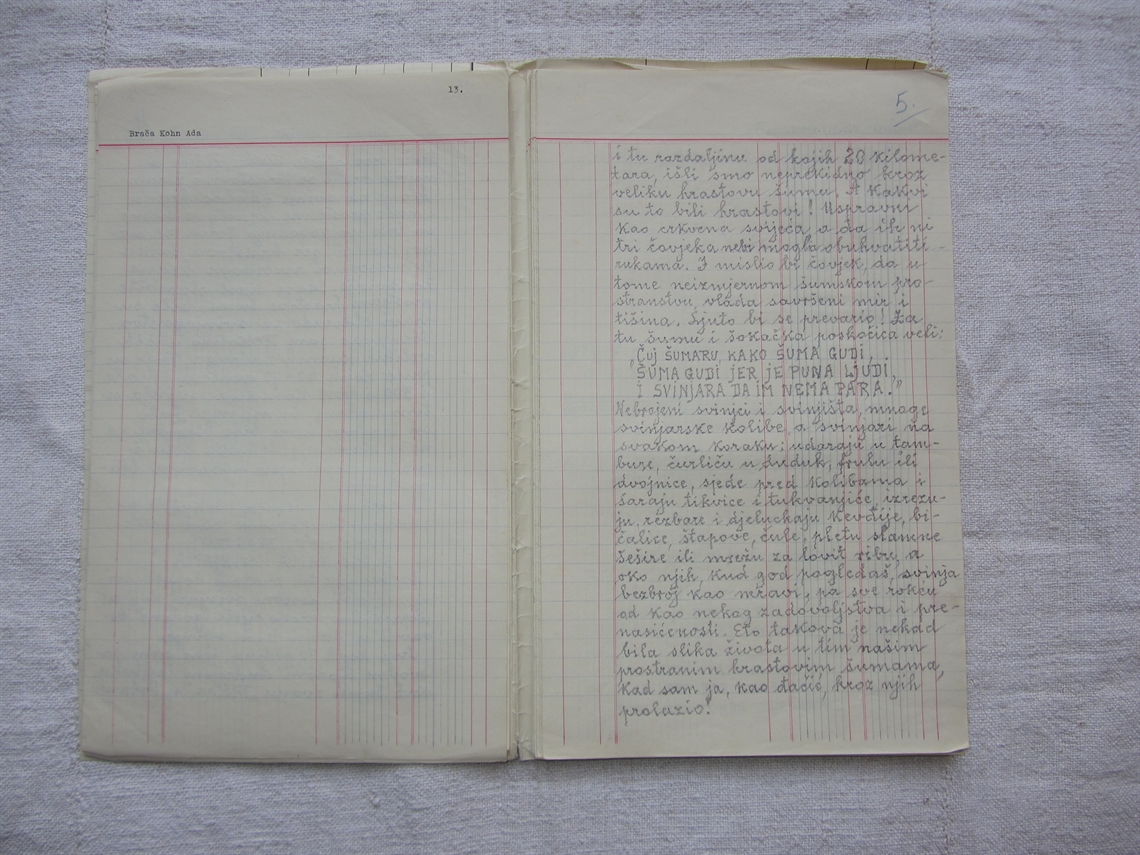 13.
Brača Kohn Ada
5.
i tu razdaljinu od kojih 20 kilome-
tara, išli smo neprekidno kroz
veliku hrastovu šumu. A kakvi
su to bili hrastovi! Uspravni
kao crkvena svijeća a da ih ni
tri čovjeka nebi mogla obuhvatiti
rukama. I mislio bi čovjek, da u
tome neizmjernom šumskom pro-
stranstvu, vlada savršeni mir i
tišina. Ljuto bi se prevario! Za
tu šumu i šokačka poskočica veli:
„ČUJ ŠUMARU, KAKO ŠUMA GUDI,
ŠUMA GUDI JER JE PUNA LJUDI,
I SVINJARA DA IM NEMA PARA."
Nebrojeni svinjci i svinjišta, mnoge
svinjarske kolibe, a svinjari na
svakom koraku: udaraju u tam-
bure, čurliču u duduk, frulu ili
dvojnice, sjede pred kolibama i
šaraju tikvice i tukvanjiće, izrezu-
ju, rezbare i djeluchaju kevđije, bi-
čalice, štapove, čule, pletu slamne
šešire ili mrežu za lovit ribu, a
oko njih, kud god pogledaš, svinja
bezbroj kao mravi, pa sve rokću
od kao nekog zadovoljstva i pre-
nasićenosti. Eto takova je nekad
bila slika života u tim našim
prostranim hrastovim šumama,
kad sam ja, kao đačić, kroz njih
prolazio!